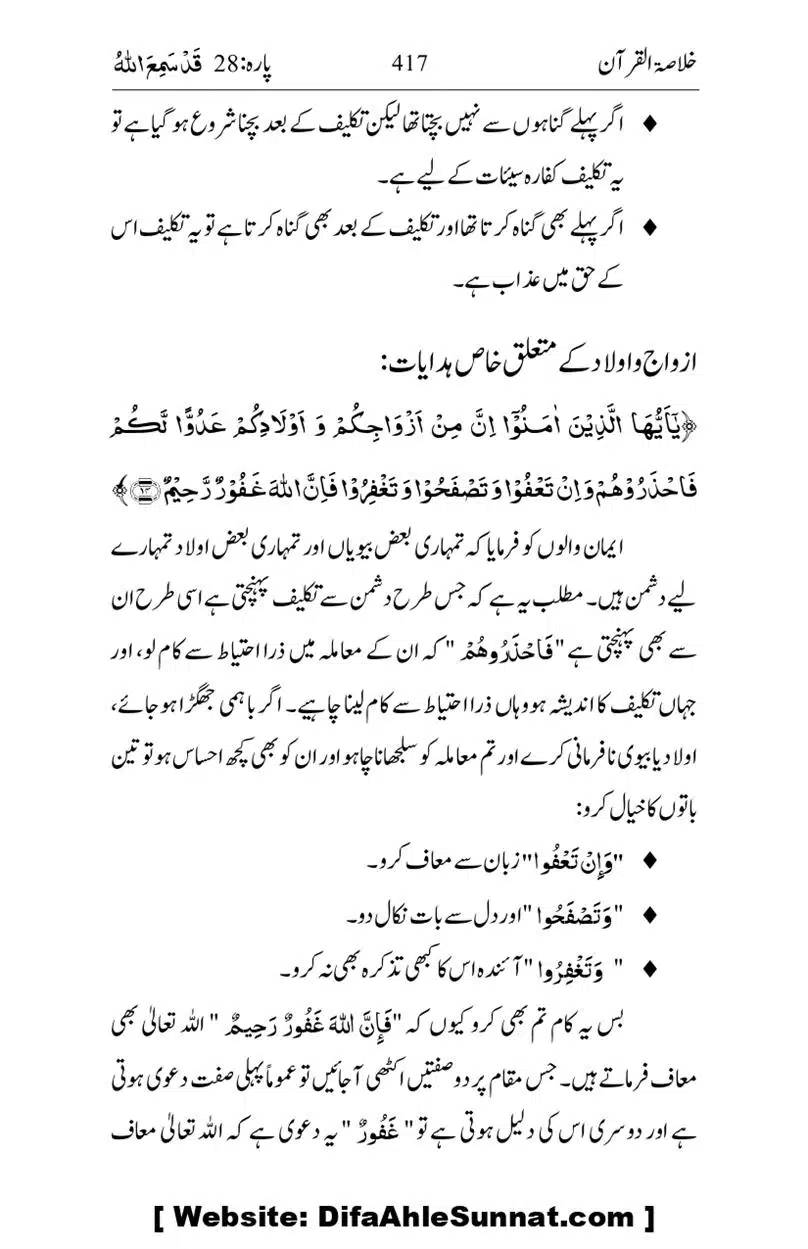 خلاصۃ القرآن 417 پارہ:28 قَدْ سَمِعَ اللهُ
♦ اگر پہلے گناہوں سے نہیں بچتا تھا لیکن تکلیف کے بعد بچنا شروع ہو گیا ہے تو
یہ تکلیف کفارہ سیئات کے لیے ہے۔
♦ اگر پہلے بھی گناہ کرتا تھا اور تکلیف کے بعد بھی گناہ کرتا ہے تو یہ تکلیف اس
کے حق میں عذاب ہے۔
ازواج و اولاد کے متعلق خاص ہدایات:
﴿یٰۤاَیُّهَا الَّذِیْنَ اٰمَنُوْۤا اِنَّ مِنْ اَزْوَاجِكُمْ وَ اَوْلَادِكُمْ عَدُوًّا لَّكُمْ
فَاحْذَرُوْهُمْ وَ اِنْ تَعْفُوْا وَ تَصْفَحُوْا وَ تَغْفِرُوْا فَاِنَّ اللهَ غَفُوْرٌ رَّحِیْمٌ ﴿۱۴﴾﴾
ایمان والوں کو فرمایا کہ تمہاری بعض بیویاں اور تمہاری بعض اولاد تمہارے
لیے دشمن ہیں۔ مطلب یہ ہے کہ جس طرح دشمن سے تکلیف پہنچتی ہے اسی طرح ان
سے بھی پہنچتی ہے "فَاحْذَرُوهُمْ " کہ ان کے معاملہ میں ذرا احتیاط سے کام لو، اور
جہاں تکلیف کا اندیشہ ہو وہاں ذرا احتیاط سے کام لینا چاہیے۔ اگر باہمی جھگڑا ہو جائے،
اولاد یا بیوی نافرمانی کرے اور تم معاملہ کو سلجھانا چاہو اور ان کو بھی کچھ احساس ہو تو تین
باتوں کا خیال کرو:
♦ "وَإِنْ تَعْفُوا" زبان سے معاف کرو۔
♦ "وَتَصْفَحُوا " اور دل سے بات نکال دو۔
♦ " وَتَغْفِرُوا " آئندہ اس کا کبھی تذکرہ بھی نہ کرو۔
بس یہ کام تم بھی کرو کیوں کہ "فَإِنَّ اللهَ غَفُورٌ رَحِيمٌ " اللہ تعالیٰ بھی
معاف فرماتے ہیں۔ جس مقام پر دو صفتیں اکٹھی آجائیں تو عموماً پہلی صفت دعوی ہوتی
ہے اور دوسری اس کی دلیل ہوتی ہے تو " غَفُورٌ " یہ دعوی ہے کہ اللہ تعالیٰ معاف
[ Website: DifaAhleSunnat.com ]